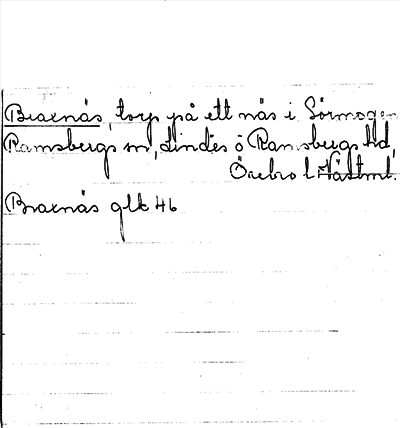 Braxnäs, torp på ett näs i Sörmogen
Ramsbergs sn, Lindes o Ramsbergs hd,
Örebro l Västml.
Braxnäs glk 46